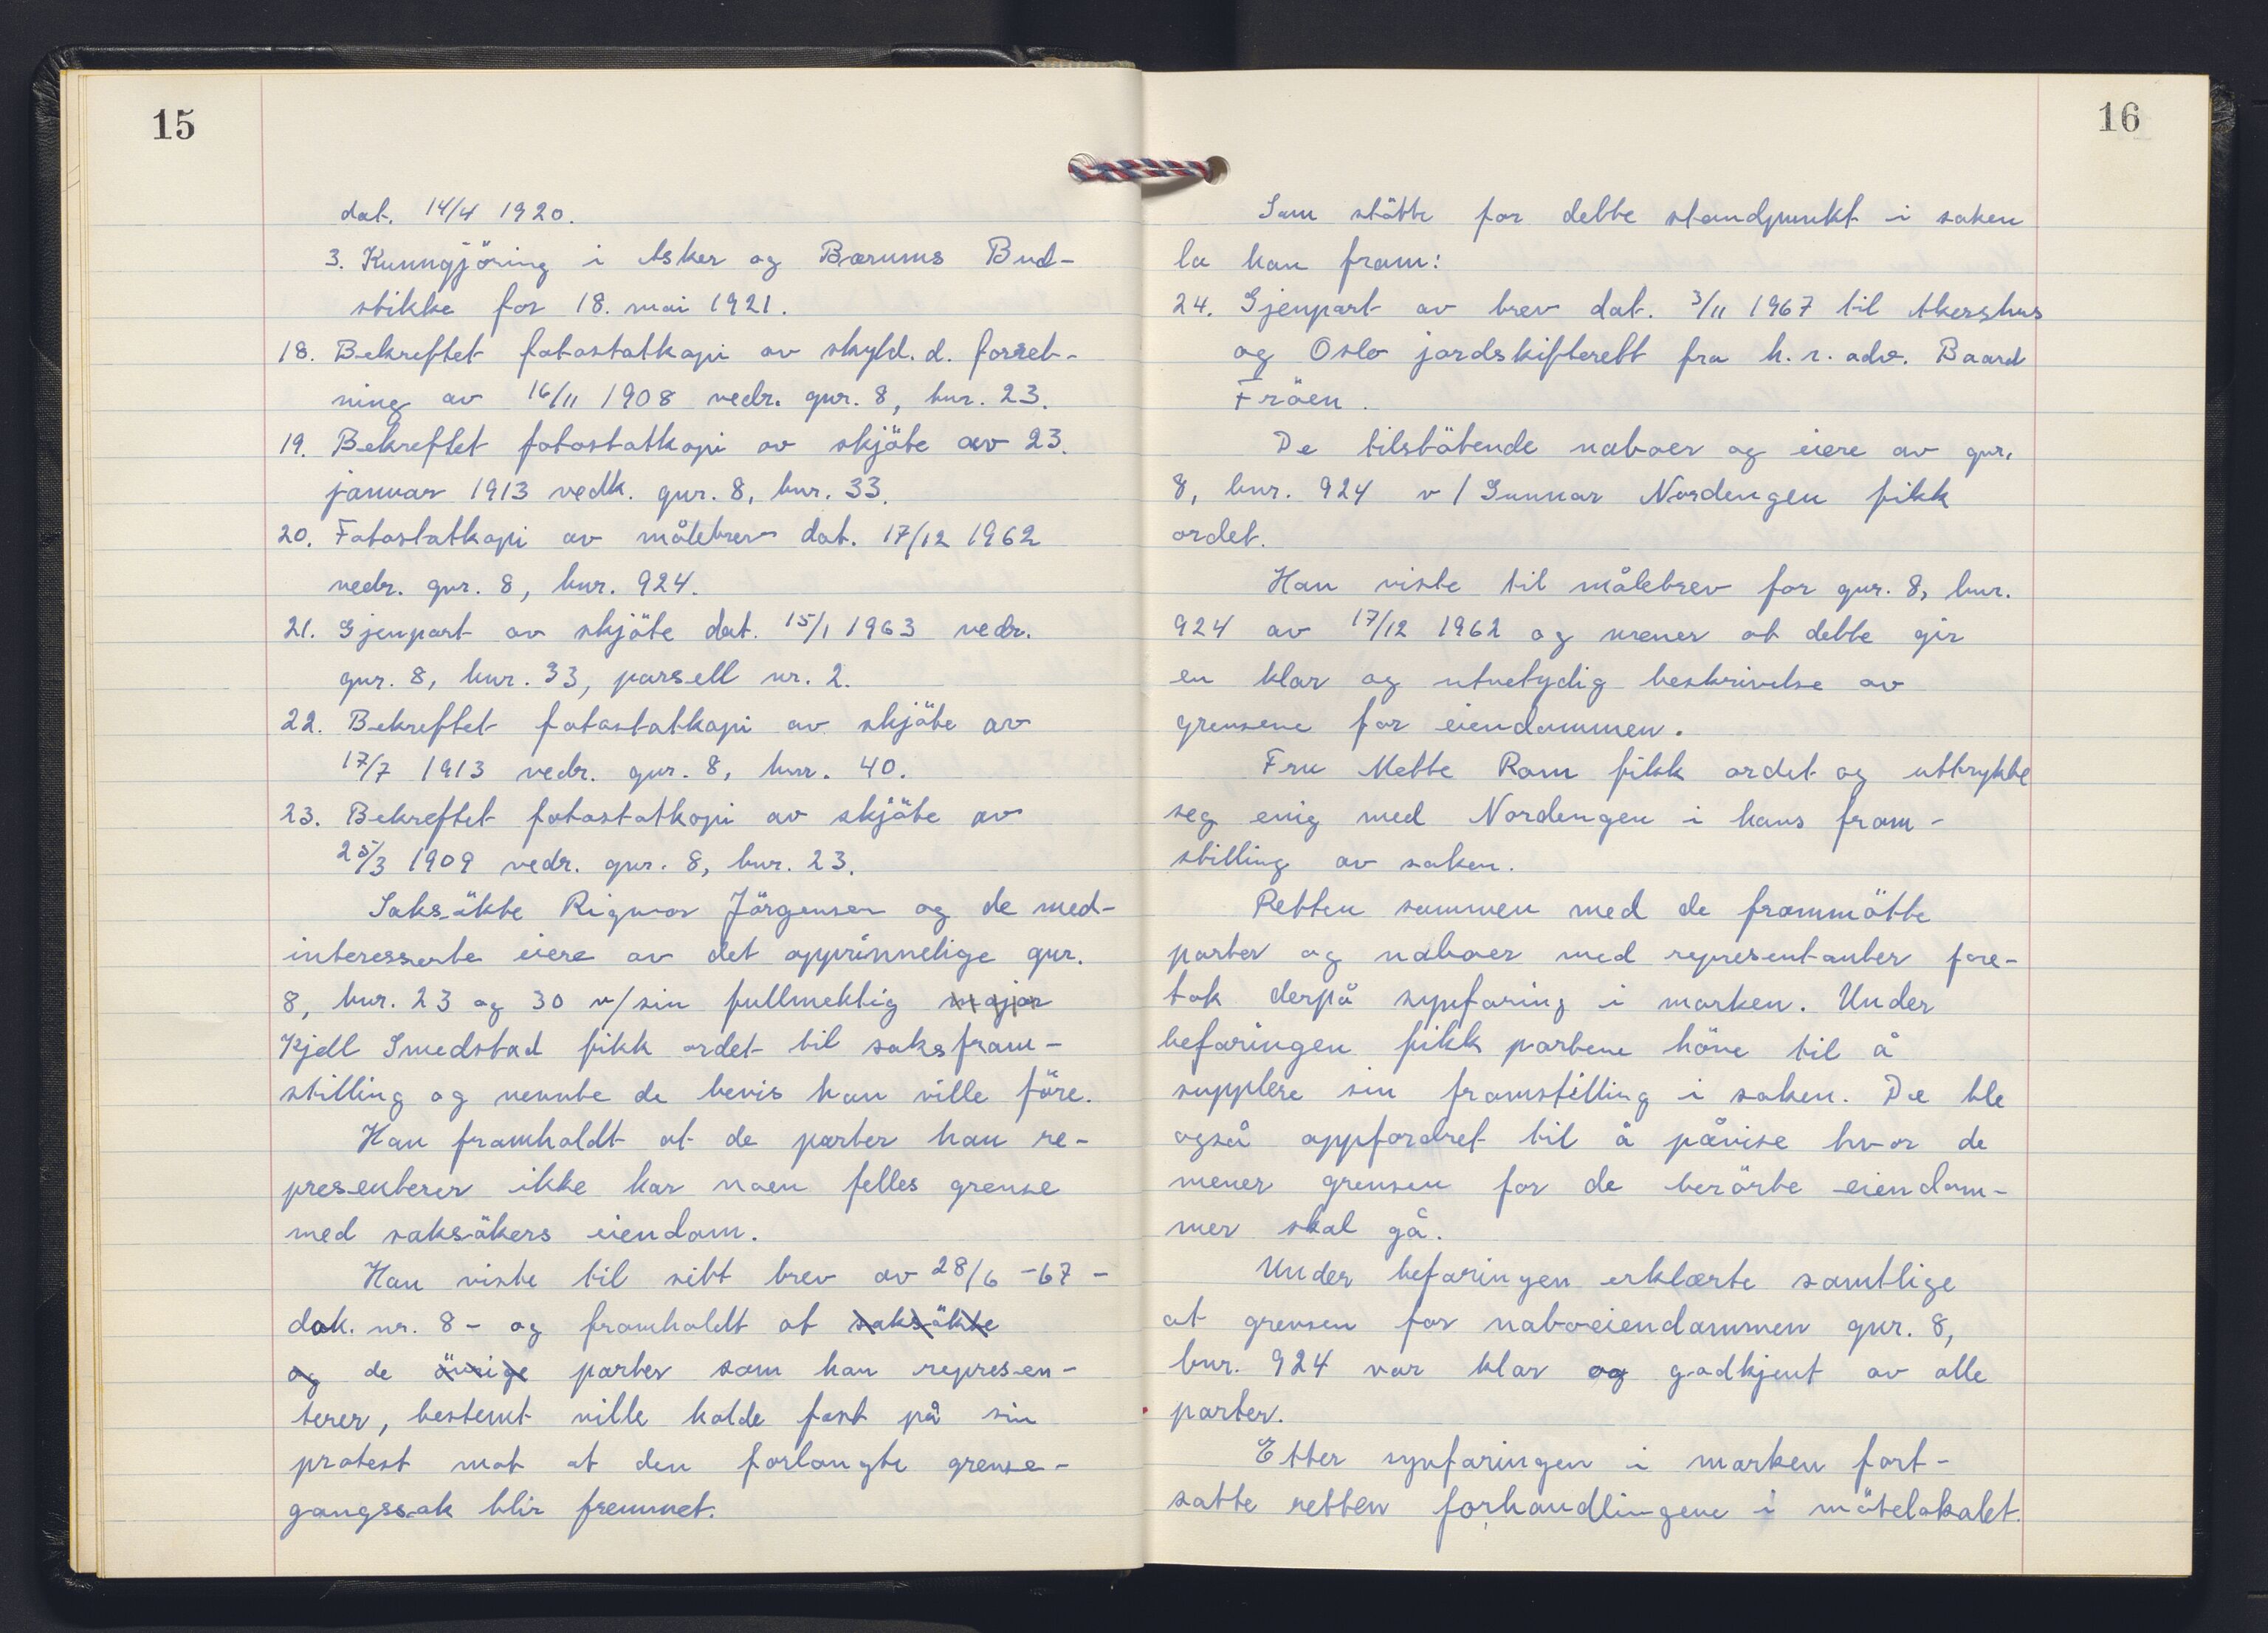 15
dat. 14/4 1920.
3. Kunngjöring i Asker og Bærums Bud-
stikke for 18. mai 1921.
18. Bekreftet fotostatkopi av skyld. d. forret-
ning av 16/11 1908 vedr. gnr. 8, bnr. 23.
19. Bekreftet fotostatkopi av skjöte av 23.
januar 1913 vedk. gnr. 8, bnr. 33.
20. Fotostatkopi av målebrev dat. 17/12 1962
vedr. gnr. 8, bnr. 924.
21. Gjenpart av skjöte dat. 15/1 1963 vedr.
gnr. 8, bnr. 33, parsell nr. 2.
22. Bekreftet fotostatkopi av skjöte av
17/7 1913 vedr. gnr. 8, bnr. 40.
23. Bekreftet fotostatkopi av skjöte av
25/3 1909 vedr. gnr. 8, bnr. 23.
Saksökte Rigmor Jörgensen og de med-
interesserte eiere av det opprinnelige gnr.
8, bnr. 23 og 30 v/ sin fullmektig major
Kjell Smedstad fikk ordet til saksfram-
stilling og nevnte de bevis han ville före.
Han framholdt at de parter han re-
presenterer ikke har noen felles grense
med saksökers eiendom.
Han viste til sitt brev av 28/6 -67 -
dok. nr. 8 - og framholdt at saksökte
og de övrige parter som han represen-
terer, bestemt ville holde fast på sin
protest mot at den forlangte grense-
gangssak blir fremmet.
16
Som stötte for dette standpunkt i saken
la han fram:
24. Gjenpart av brev dat. 3/11 1967 til Akershus
og Oslo jordskifterett fra h.r. adv. Baard
Fröen.
De tilstötende naboer og eiere av gnr.
8, bnr. 924 v/ Gunnar Nordengen fikk
ordet.
Han viste til målebrev for gnr. 8, bnr.
924 av 17/12 1962 og mener at dette gir
en klar og utvetydig beskrivelse av
grensene for eiendommen.
Fru Mette Rom fikk ordet og uttrykte
seg enig med Nordengen i hans fram-
stilling av saken.
Retten sammen med de frammötte
parter og naboer med representanter fore-
tok derpå synfaring i marken. Under
befaringen fikk partene höve til å
supplere sin framstilling i saken. De ble
også oppfordret til å påvise hvor de
mener grensen for de berörte eiendom-
mer skal gå.
Under befaringen erklærte samtlige
at grensen for naboeiendommen gnr. 8,
bnr. 924 var klar og godkjent av alle
parter.
Etter synfaringen i marken fort-
satte retten forhandlingene i mötelokalet.